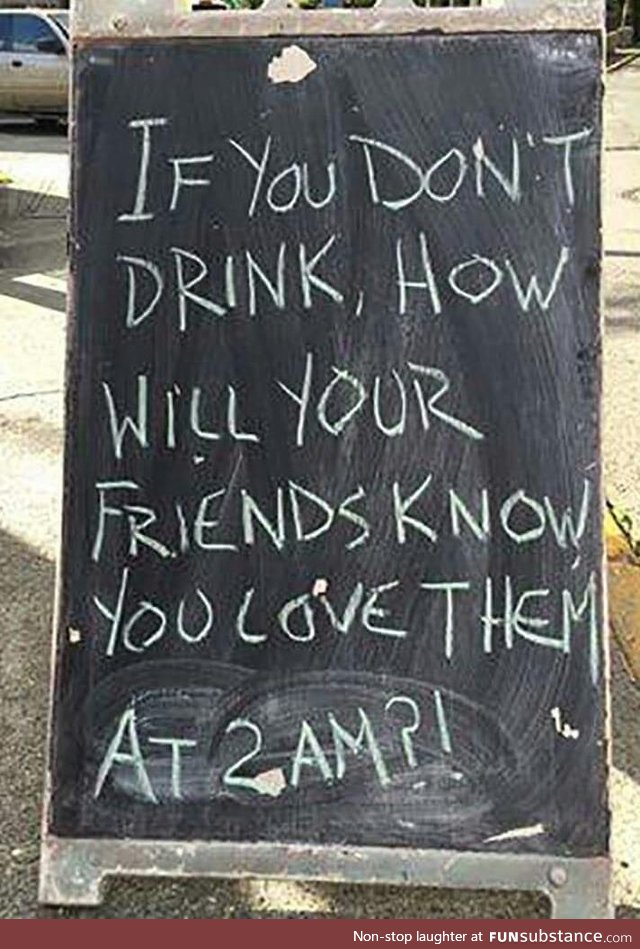 IF YOU DON'T
DRINK, HOW
WILL YOUR
FRIENDS KNOW
YOU LOVE THEM
AT 2 AM?!
Non-stop laughter at FUNsubstance.com